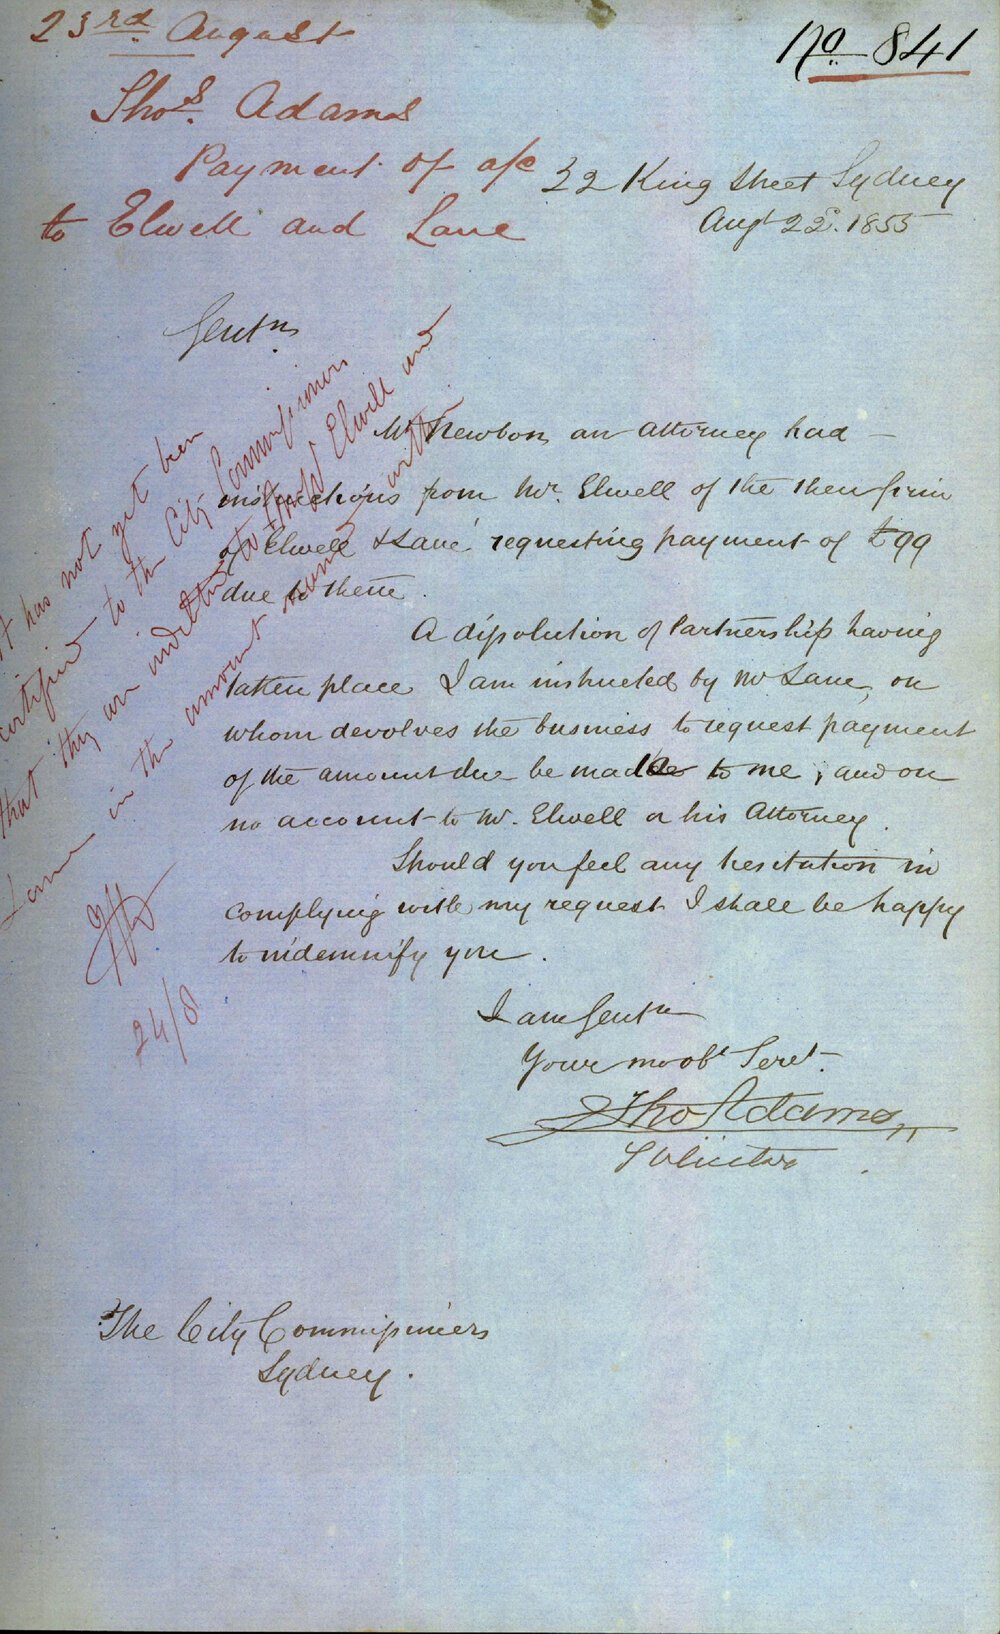 23rd August
No 841
Thos. Adams
Payment of a/c
to Elwell and Lane
32 King Street Sydney
Augt 22d. 1855
Gentn
Mr Newbon an Attorney had
instructions from Mr. Elwell of the then firm
of Elwell & Lane requesting payment of £99
due to them.
A dissolution of Partnership having
taken place I am instructed by Mr Lane, on
whom devolves the business to request payment
of the amount due be made to me, and on
no account to Mr. Elwell or his Attorney.
Should you feel any hesitation in
complying with my request I shall be happy
to indemnify you.
I am Gentn
Your mo obt Servt.
Thos Adams
Solicitor
The City Commissioners
Sydney.
It has not yet been
certified to the City Commissioners
that they are indebted to Messrs Elwell and
Lane in the amount named within.
24/8